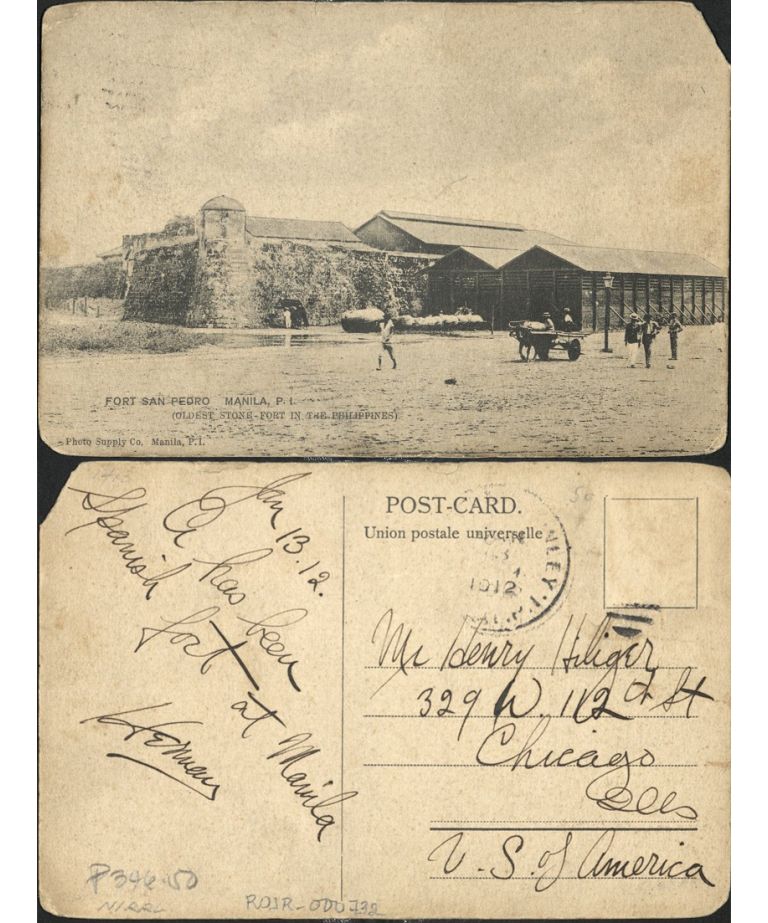 FORT SAN PEDRO MANILA, P. I.
(OLDEST STONE-FORT IN THE PHILIPPINES)
Photo Supply Co. Manila, P.I.
Jan 13.12.
A has been
Spanish
fort at Manila
Herman
POST-CARD.
Union postale universelle
1912
Mr Henry Hiliger
329 W. 112 St
Chicago
Ills
U.S. of America
P346-50